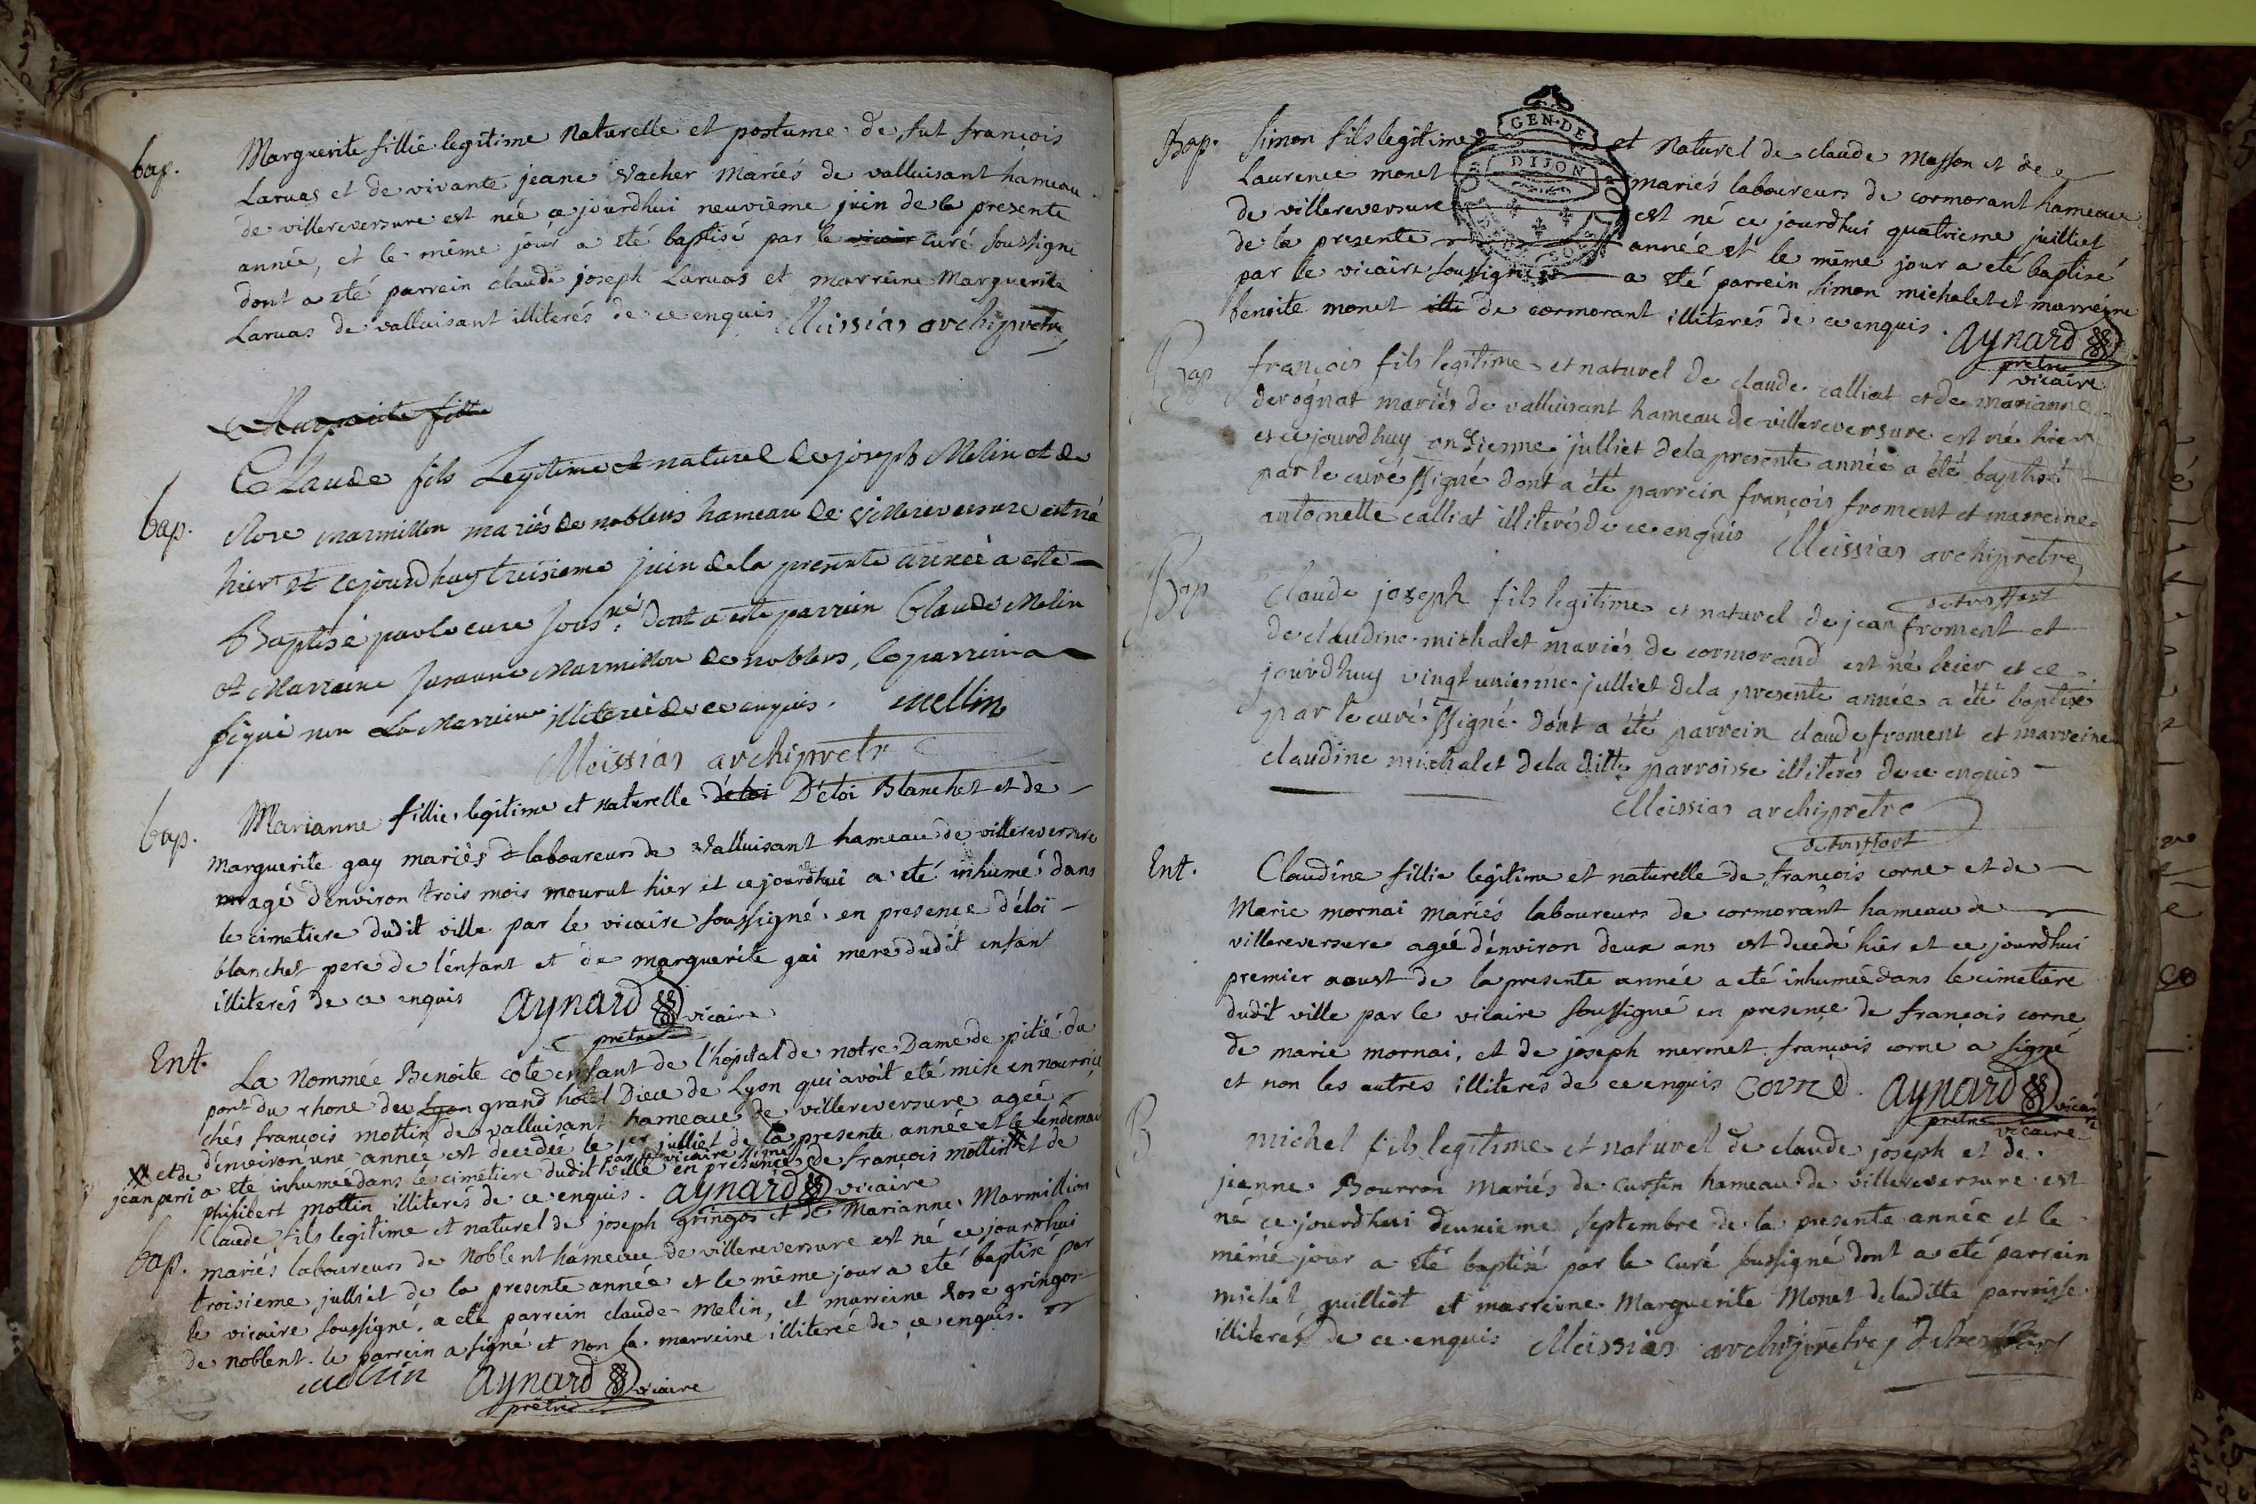 bap.
Marguerite fillie legitime Naturelle et postume de fut françois
Laruas et de vivante jeane vacher mariés de valluisant hameau
de villereversure est née ce jourdhui neuvième juin de la presente
année, et le même jour a été baptisé par le curé soussigné
dont a été parrein claude joseph Laruas et marreine Marguerite
Laruas de valluisant illiterés de ce enquis Meissias archipretre
Marguerite fille
bap.
Claude fils Legitime et naturel de joseph Melin et de
Rose marmillon mariés de noblens hameau de villereversure est né
hier et cejourdhuy treisieme juin de la presente année a esté
Baptisé par le curé sousné dont a été parrein Claude Melin
et Marraine Susanne Marmillon de noblens, le parrein a
signé non La Marreine illiterée de ce enquis. Mellin
Meissias archipretr
bap.
Marianne fillie legitime et naturelle d'eloi D'éloi Blanchet et de
Marguerite gay mariés laboureurs de valluisant hameau de villereversure
agé d'environ trois mois mourut hier et ce jourdhui a été inhumé dans
le cimetiere dudit ville par le vicaire soussigné en presence d'éloi
blanchet pere de l'énfant et de marguerite gai mere dudit enfant
illiterés de ce enquis aynard vicaire
prêtre
Ent.
La Nommée Benoite côte enfant de l'hôpital de notre Dame de pitié du
pont du rhone deu Lyon grand hotel Dieu de Lyon qui avoit eté mise en nourrice
chés françois mottin de valluisant hameau de villereversure agée
d'énvironune année est decedée le 1er julliet de la presente année et le lendemain
par le vicaire
et de a été inhumée dans le cimetiere dudit ville en presence de françois mottin et de
jean perri
philibert mottin illiterés de ce enquis. aynard vicaire
bap.
Claude fils legitime et naturel de joseph gringos et de Marianne Marmillion
mariés laboureurs de Noblent hameau de villereversure est né ce jourdhui
troisieme julliet de la presente année et le même jour a eté baptisé par
le vicaire soussigné, a eté parrein claude melin, et marreine Rose gringos
de noblent. le parrein a signé et non la marreine illiterée de ce enquis.
mellin aynard vicaire
prêtre
Bap.
Simon fils legitime et Naturel de claude Masson et de
GEN. DE
DIJON
Laurence monet mariés laboureurs de cormorant hameau
de villereversure est né ce jourdhui quatrieme julliet
de la presente année et le même jour a eté baptisé
par le vicaire soussigné a été parrein simon michalet et marreine
benoite monet de cormorant illiterés de ce enquis. aynard
prêtre
vicaire
Bap
françois fils legitime et naturel de claude calliat et de marianne
derognat mariés de valluisant hameau de villereversure est né hier
et ce jourdhuy onzienne julliet dela presente année a été baptisé
par le curé ssigné dont a été parrein françois froment et marreine
antoinette calliat illiterés de ce enquis Meissias archipretre
Bap
Claude joseph fils legitime et naturel de jean froment et
de claudine michalet mariés de cormorand est né hier et ce
jourdhuy vingt unieme julliet dela presente année a été baptisé
par le curé ssigné dont a été parrein claude froment et marreine
claudine michalet dela ditte parroisse illiterés de ce enquis
Meissias archipretre
Ent.
Claudine fillie legitime et naturelle de françois corne et de
Marie mornai mariés laboureurs de cormorant hameau de
villereversure agée d'énviron deux ans est decedé hier et ce jourdhui
premier aoust de la presente année a eté inhumée dans le cimetiere
dudit ville par le vicaire soussigné en presence de françois corne
de marie mornai, et de joseph mermet. françois corne a signé
et non les autres illiterés de ce enquis corne. aynard
prêtre vicaire
B
michel fils legitime et naturel de claude joseph et de
jeanne Bourron mariés de cursin hameau de villereversure est
né ce jourdhui deuxieme septembre de la presente année et le
même jour a été baptisé par le curé soussigné dont a eté parrein
michel guilliot et marreine Marguerite Monet de laditte parroisse
illiterés de ce enquis Meissias archiprêtre